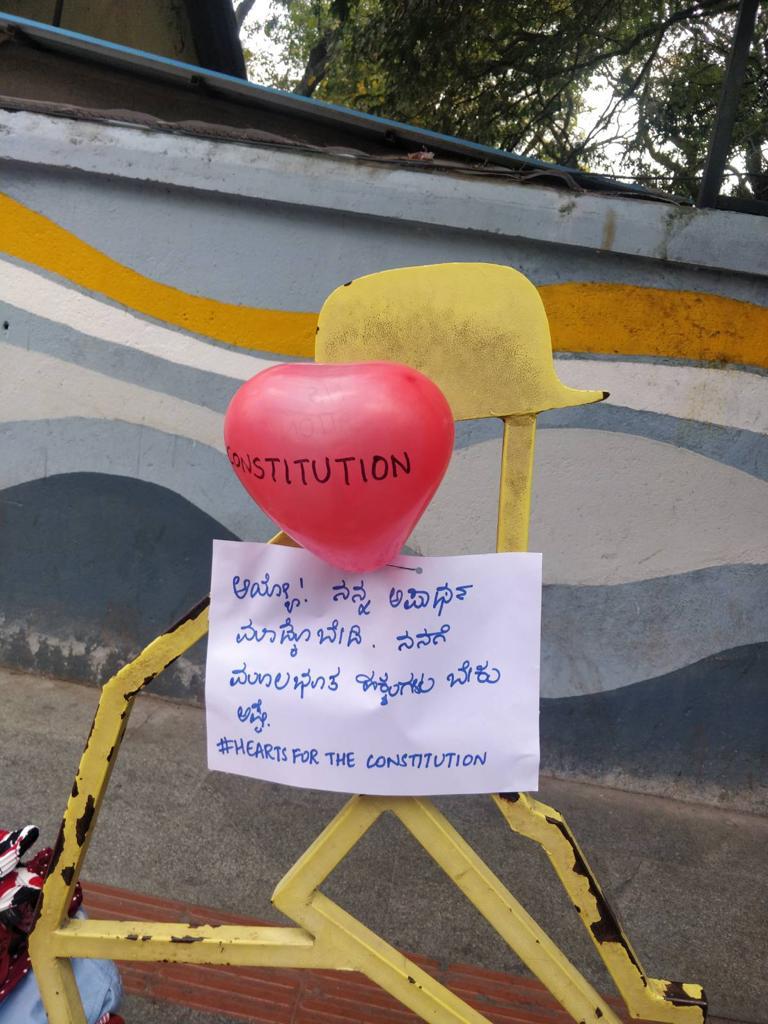 CONSTITUTION
ಅಯ್ಯೋ! ನನ್ನ ಅಪಾರ್ಥ
ಮಾಡ್ಕೊಬೇಡಿ. ನನಗೆ
ಮೂಲಭೂತ ಹಕ್ಕುಗಳು ಬೇಕು
ಅಷ್ಟೇ.
#HEARTS FOR THE CONSTITUTION